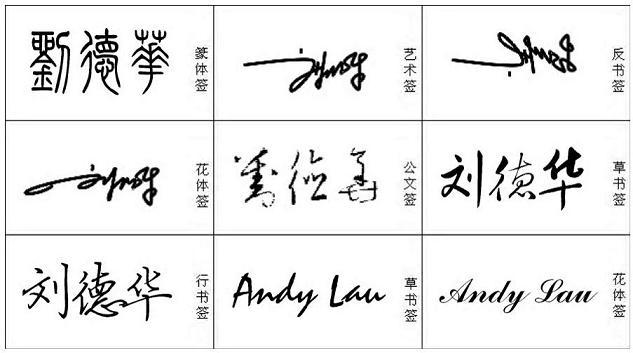 劉德華 篆体签
刘德华 艺术签
反书签
刘德华 花体签
公文签
刘德华 草书签
刘德华 行书签
Andy Lau 草书签
Andy Lau 花体签